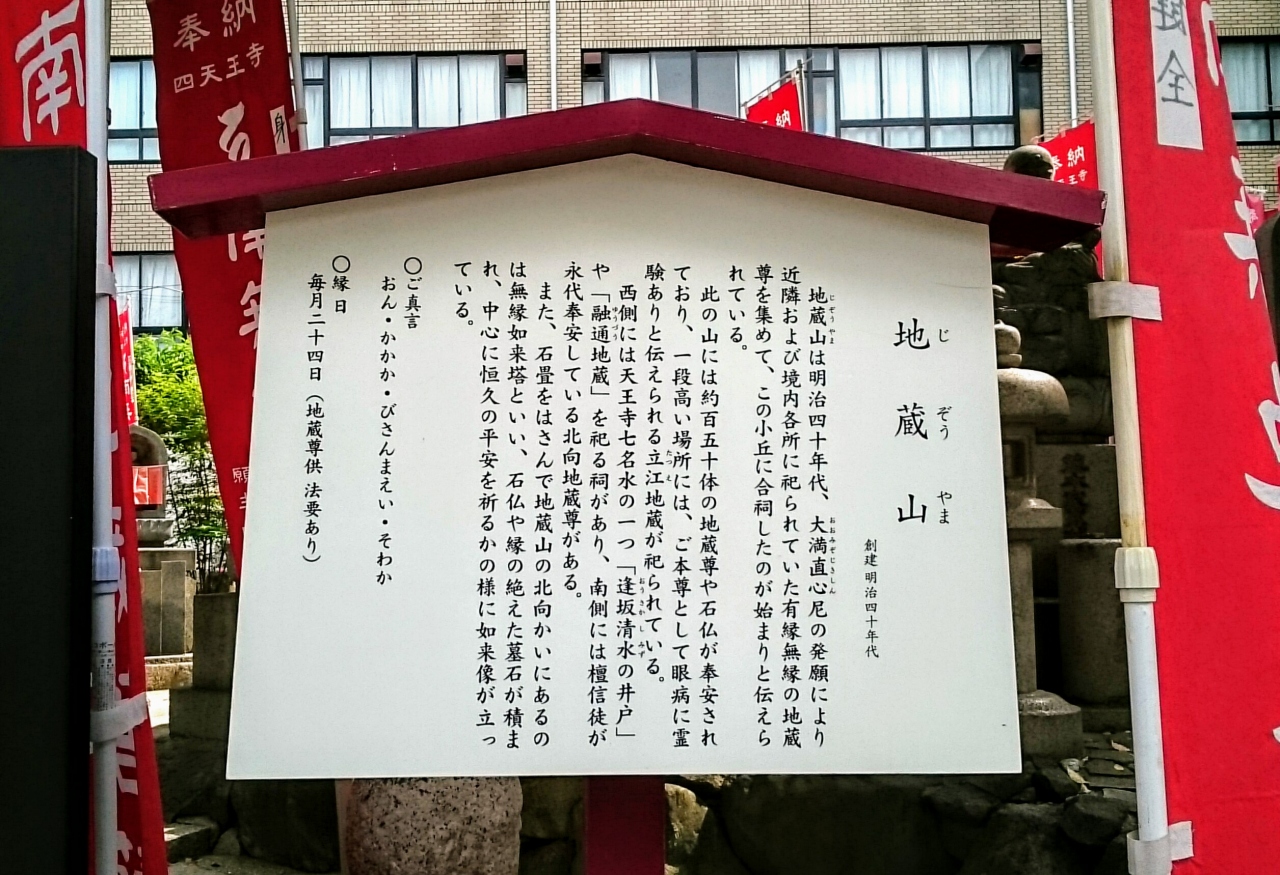 地蔵山
じぞうやま
創建 明治四十年代
地蔵山は明治四十年代、大満直心尼の発願により
じぞうやま
おおみぞじきしん
近隣および境内各所に祀られていた有縁無縁の地蔵
尊を集めて、この小丘に合祠したのが始まりと伝えら
れている。
此の山には約百五十体の地蔵尊や石仏が奉安され
ており、一段高い場所には、ご本尊として眼病に霊
験ありと伝えられる立江地蔵が祀られている。
たつえ
西側には天王寺七名水の一つ「逢坂清水の井戸」
おうさかしみず
や「融通地蔵」を祀る祠があり、南側には檀信徒が
ゆうづう
永代奉安している北向地蔵尊がある。
また、石畳をはさんで地蔵山の北向かいにあるの
は無縁如来塔といい、石仏や縁の絶えた墓石が積ま
れ、中心に恒久の平安を祈るかの様に如来像が立っ
ている。
〇ご真言
おん・かかか・びさんまえい・そわか
〇縁日
毎月二十四日（地蔵尊供 法要あり）
奉納
四天王寺
南無
南
奉納
四天王寺
納
健全
身
願